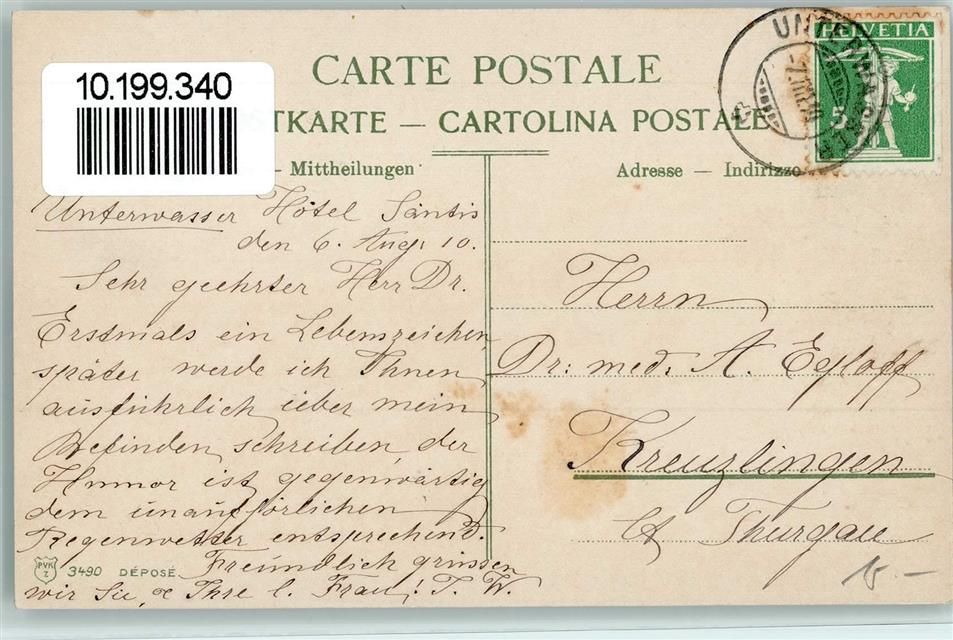 10.199.340
CARTE POSTALE
TKARTE — CARTOLINA POSTALE
- Mittheilungen
Adresse — Indirizzo
UNTERWASSER
HELVETIA
5
Unterwasser Hôtel Säntis
den 6. Aug. 10.
Sehr geehrter Herr Dr.
Erstmals ein Lebenszeichen,
später werde ich Ihnen
ausführlich über mein
Befinden schreiben, der
Humor ist gegenwärtig
dem unaufhörlichen
Regenwetter entsprechend.
Freundlich grüssen
wir Sie, & Ihre l. Frau! T. W.
Herrn
Dr: med. A. Egloff
Kreuzlingen
Ct Thurgau
PVK
Z
3490 DÉPOSÉ